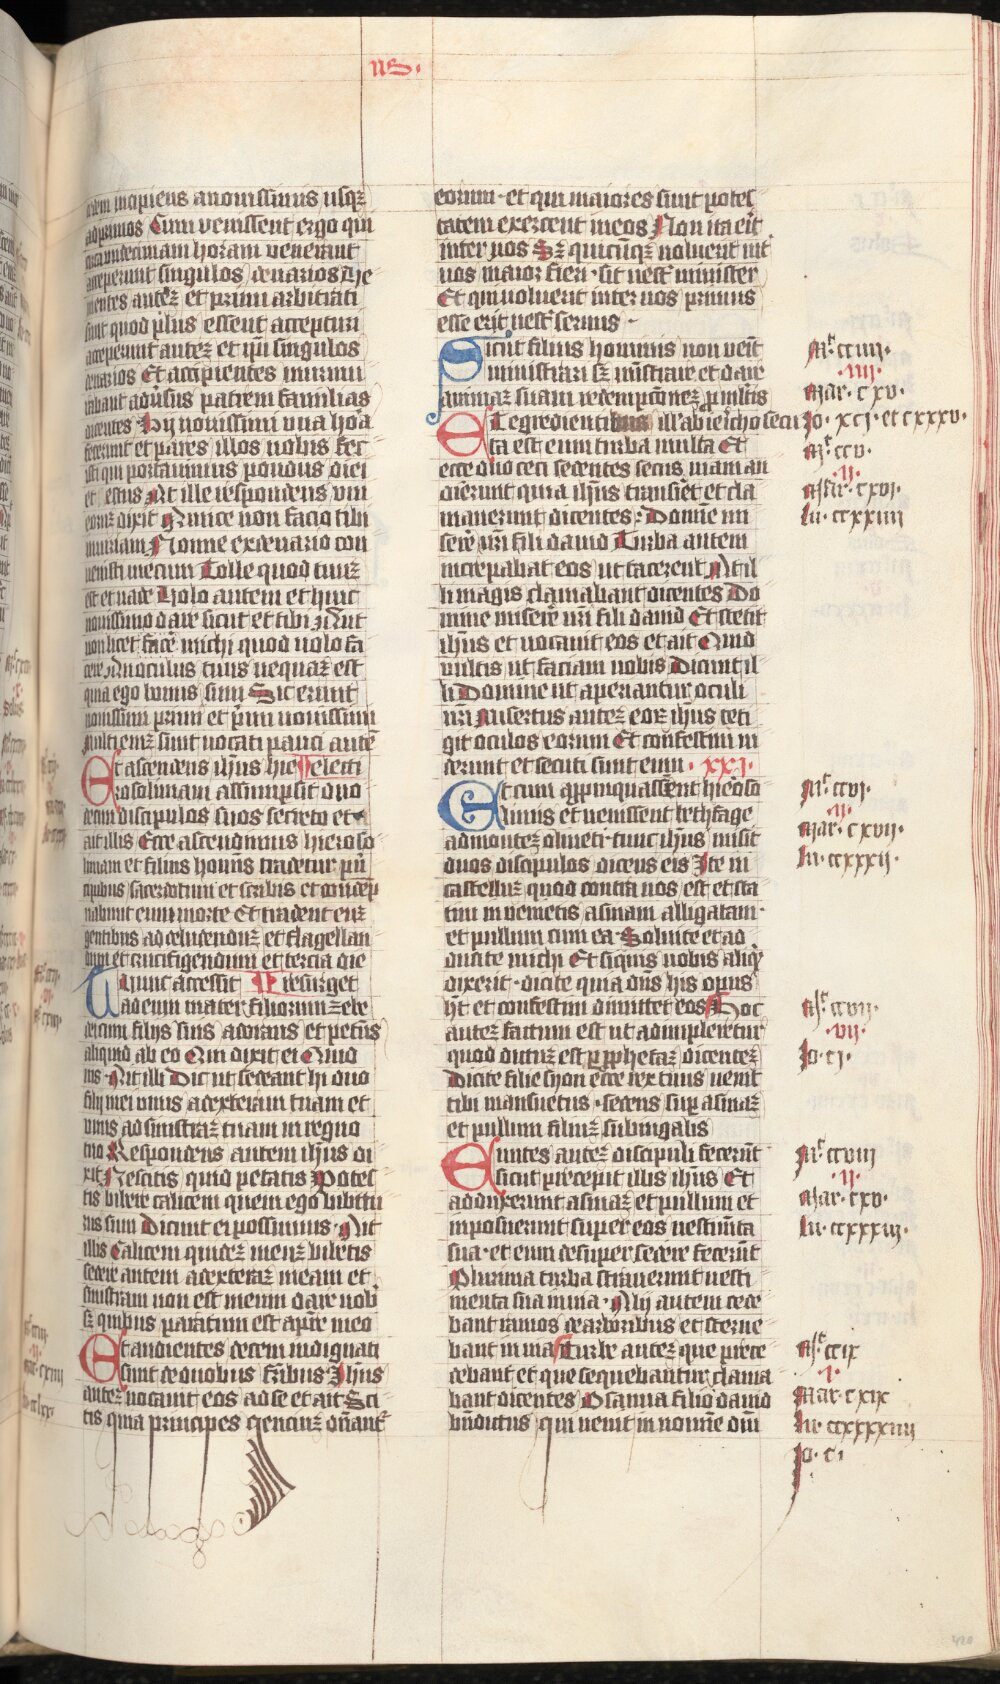 us.
dem incipiens a novissimis usqz
ad primos Cum venissent ergo qui
circa undecimam horam venerant
acceperunt singulos denarios Ve
nientes autez et primi arbitrati
sunt quod plus essent accepturi
acceperunt autez et ipsi singulos
denarios Et accipientes murmu
rabant adversus patrem familias
dicentes Hy novissimi una hora
fecerunt et pares illos nobis fec
isti qui portavimus pondus diei
et estus At ille respondens uni
eoruz dixit Amice non facio tibi
iniuriam Nonne ex denario con
venisti mecum Tolle quod tuuz
est et vade Volo autem et huic
novissimo dare sicut et tibi Aut
non licet facere michi quod volo fa
cere An oculus tuus nequaz est
quia ego bonus sum Sic erunt
novissimi primi et primi novissimi
Multi eniz sunt vocati pauci aute
Et ascendens ihus hie electi
rosolimam assumpsit duo
decim discipulos suos secreto et
ait illis Ecce ascendimus hieroso
limam et filius hominis tradetur prin
cipibus sacerdotum et scribis et condep
nabunt eum morte Et tradent euz
gentibus ad deludenduz et flagellan
dum et crucifigendum et tercia die
Tunc accessit resurget
ad eum mater filiorum zebe
dei cum filijs suis adorans et petens
aliquid ab eo Qui dixit ei Quid
vis Ait illi Dic ut sedeant hi duo
filij mei unus ad exteram tuam et
unus ad sinistraz tuam in regno
tuo Respondens autem ihus di
xit Nescitis quid petatis Potes
tis bibere calicem quem ego bibitu
rus sum Dicunt ei possumus Ait
illis Calicem quidez meuz bibetis
sedere autem ad exteraz meam et
sinistram non est meum dare vob
sz quibus paratum est a patre meo
Et audientes decem indignati
sunt de duobus fratribus Ihus
autez vocavit eos ad se et ait Sci
tis quia principes genciuz dnant
eorum et qui maiores sunt potes
tatem exercent in eos Non ita erit
inter vos Sz quicunqz voluerit int
vos maior fieri sit vester minister
Et qui voluerit inter vos primus
esse erit vester servus
Sicut filius hominis non venit
ministrari sz ministrare et dare
animaz suam redemptionez pro multis
Et egredientibus illis ab iericho secu
ta est eum turba multa Et
ecce duo ceci sedentes secus viam au
dierunt quia ihus transiret et cla
maverunt dicentes Domine mi
serere nostri fili david Turba autem
increpabat eos ut tacerent At il
li magis clamabant dicentes Do
mine miserere nostri fili david Et stetit
ihus et vocavit eos et ait Quid
vultis ut faciam vobis Dicunt il
li Domine ut aperiantur oculi
nostri Misertus autez eoruz ihus teti
git oculos eorum Et confestim vi
derunt et secuti sunt eum XXI
Et cum appropinquassent hieroso
limis et venissent bethfage
ad montez oliveti tunc ihus misit
duos discipulos dicens eis Ite in
castelluz quod contra vos est et sta
tim invenietis asinam alligatam
et pullum cum ea Solvite et ad
ducite michi Et si quis vobis aliqd
dixerit dicite quia dns his opus
habet et confestim dimittet eos Hoc
autez factum est ut adimpleretur
quod dictuz est per prophetaz dicentez
Dicite filie syon ecce rex tuus venit
tibi mansuetus sedens sup asinaz
et pullum filiuz subiugalis
Euntes autez discipuli fecerunt
sicut precepit illis ihus Et
adduxerunt asinaz et pullum et
imposuerunt super eos vestimenta
sua et eum desuper sedere fecerunt
Plurima turba straverunt vesti
menta sua in via Alij autem cede
bant ramos de arboribus et sterne
bant in via Turbe autez que prece
debant et que sequebantur clama
bant dicentes Osanna filio david
benedictus qui venit in nomine dni
Mt cciiii
iiii
Mar. cxv.
Jo. xcj. et cxxxv.
Mt ccv.
ij.
Mar. cxvj.
Lu. ccxxiiii
Mt ccvj.
ij.
Mar. cxvij.
Lu. ccxxxij.
Mt ccvij.
vij.
Jo. cj.
Mt ccviij
ij.
Mar. cxv.
Lu. ccxxxiij.
Mt ccix
j.
Mar. cxix
Lu. ccxxxxiiij
Jo. ci
420